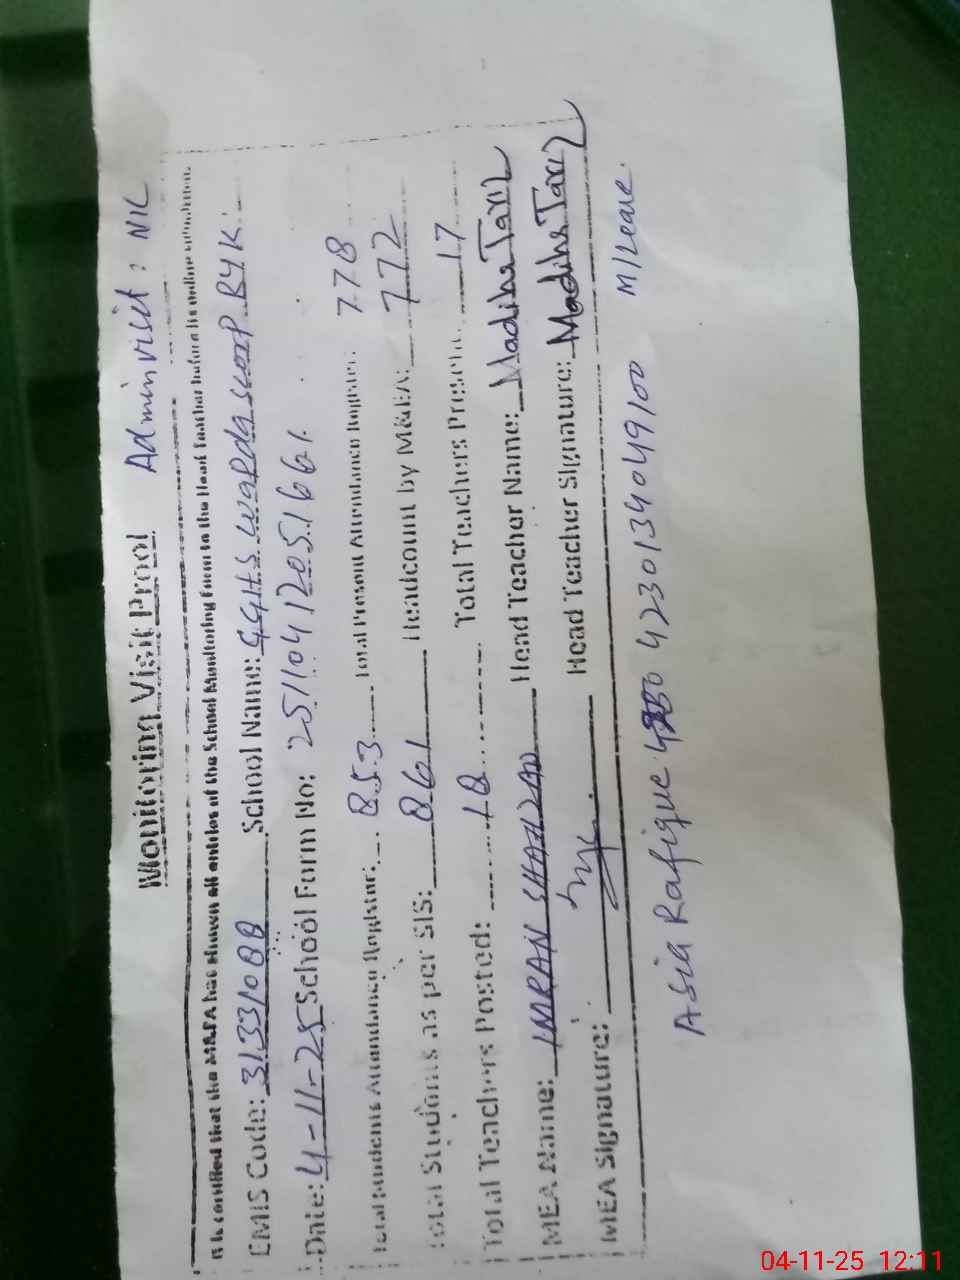 Monitoring Visit Proof Admin visit : NIL
It is certified that the M&EA has shown all entries of the School Monitoring Form to the Head Teacher before its online submission.
EMIS Code: 31331088 School Name: GGHS
Date: 4-11-25 School Form No: 251104120516661
Total Students Attendance Register: 853 Total Present Attendance Register: 778
Total Students as per SIS: 861 Headcount by M&EA: 772
Total Teachers Posted: 18 Total Teachers Present: 17
MEA Name: IMRAN SHAHZAD Head Teacher Name: Madiha Tariq
MEA Signature: Head Teacher Signature: Madiha Tariq
Asia Rafique 4230134049100 M/Leave
04-11-25 12:11